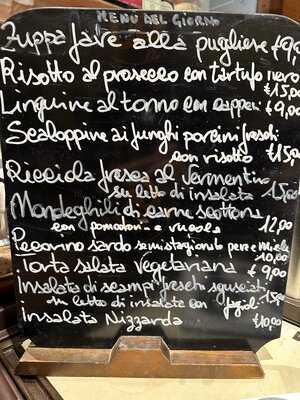 MENU DEL GIORNO
Zuppa fave alla pugliese €9,
Risotto al prosecco con tartufo nero
€15,00
Linguine al tonno con capperi €9,00
Scaloppine ai funghi porcini freschi
con risotto €15,00
Ricciola fresca al vermentino
su letto di insalata 15,00
Mondeghili di carne scottona
con pomodorini e rucola 12,00
Pecorino sardo semistagionato pere e miele
10,00
Torta salata vegetariana € 9,00
Insalata di scampi freschi sgusciati
su letto di insalata con 15,00
insalata Nizzarda €10,00